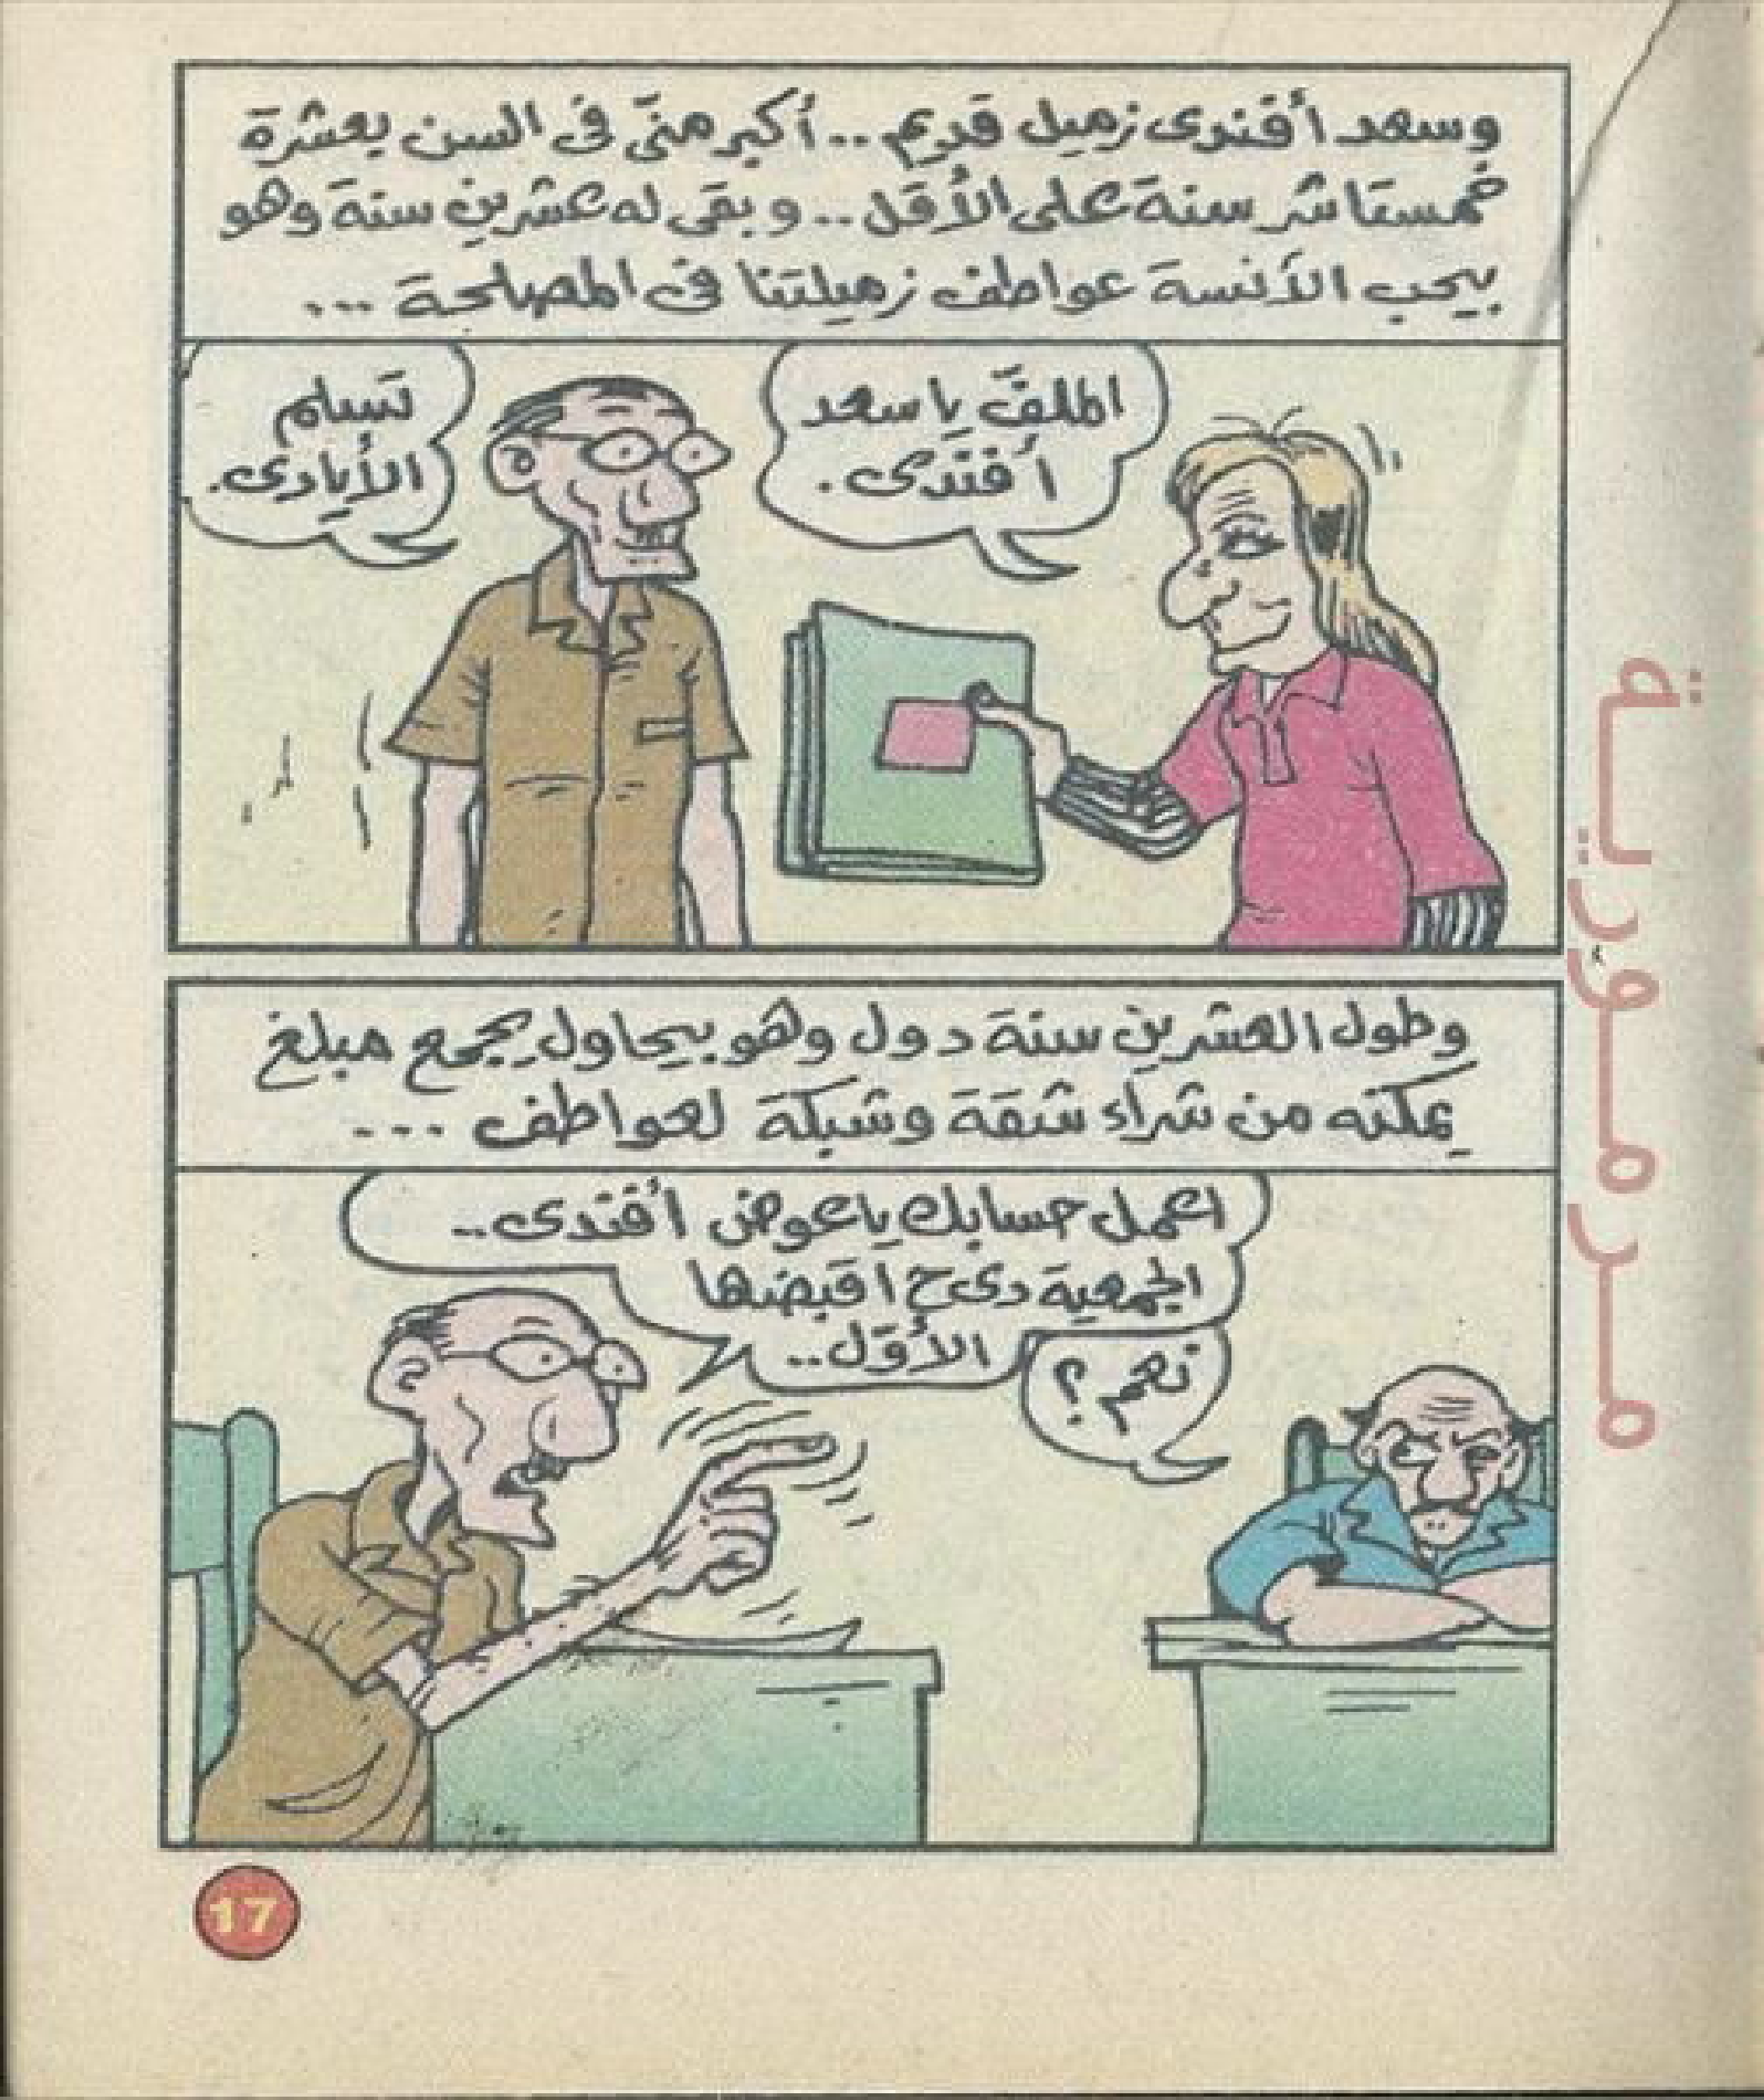 وسعد أفندى زميل قديم .. أكبر منّى فى السن بعشرة
خمستاشر سنة على الأقل .. وبقى له عشرين سنة وهو
بيحب الآنسة عواطف زميلتنا فى المصلحة ...
الملفّ يا سعد
أفندى .
تسلم
الأيادى .
وطول العشرين سنة دول وهو بيحاول يجمع مبلغ
يمكنه من شراء شقة وشبكة لعواطف ...
اعمل حسابك يا عوض أفندى ..
الجمعية دى ح اقبضها
الأول ..
نعم ؟
17
مرمورية